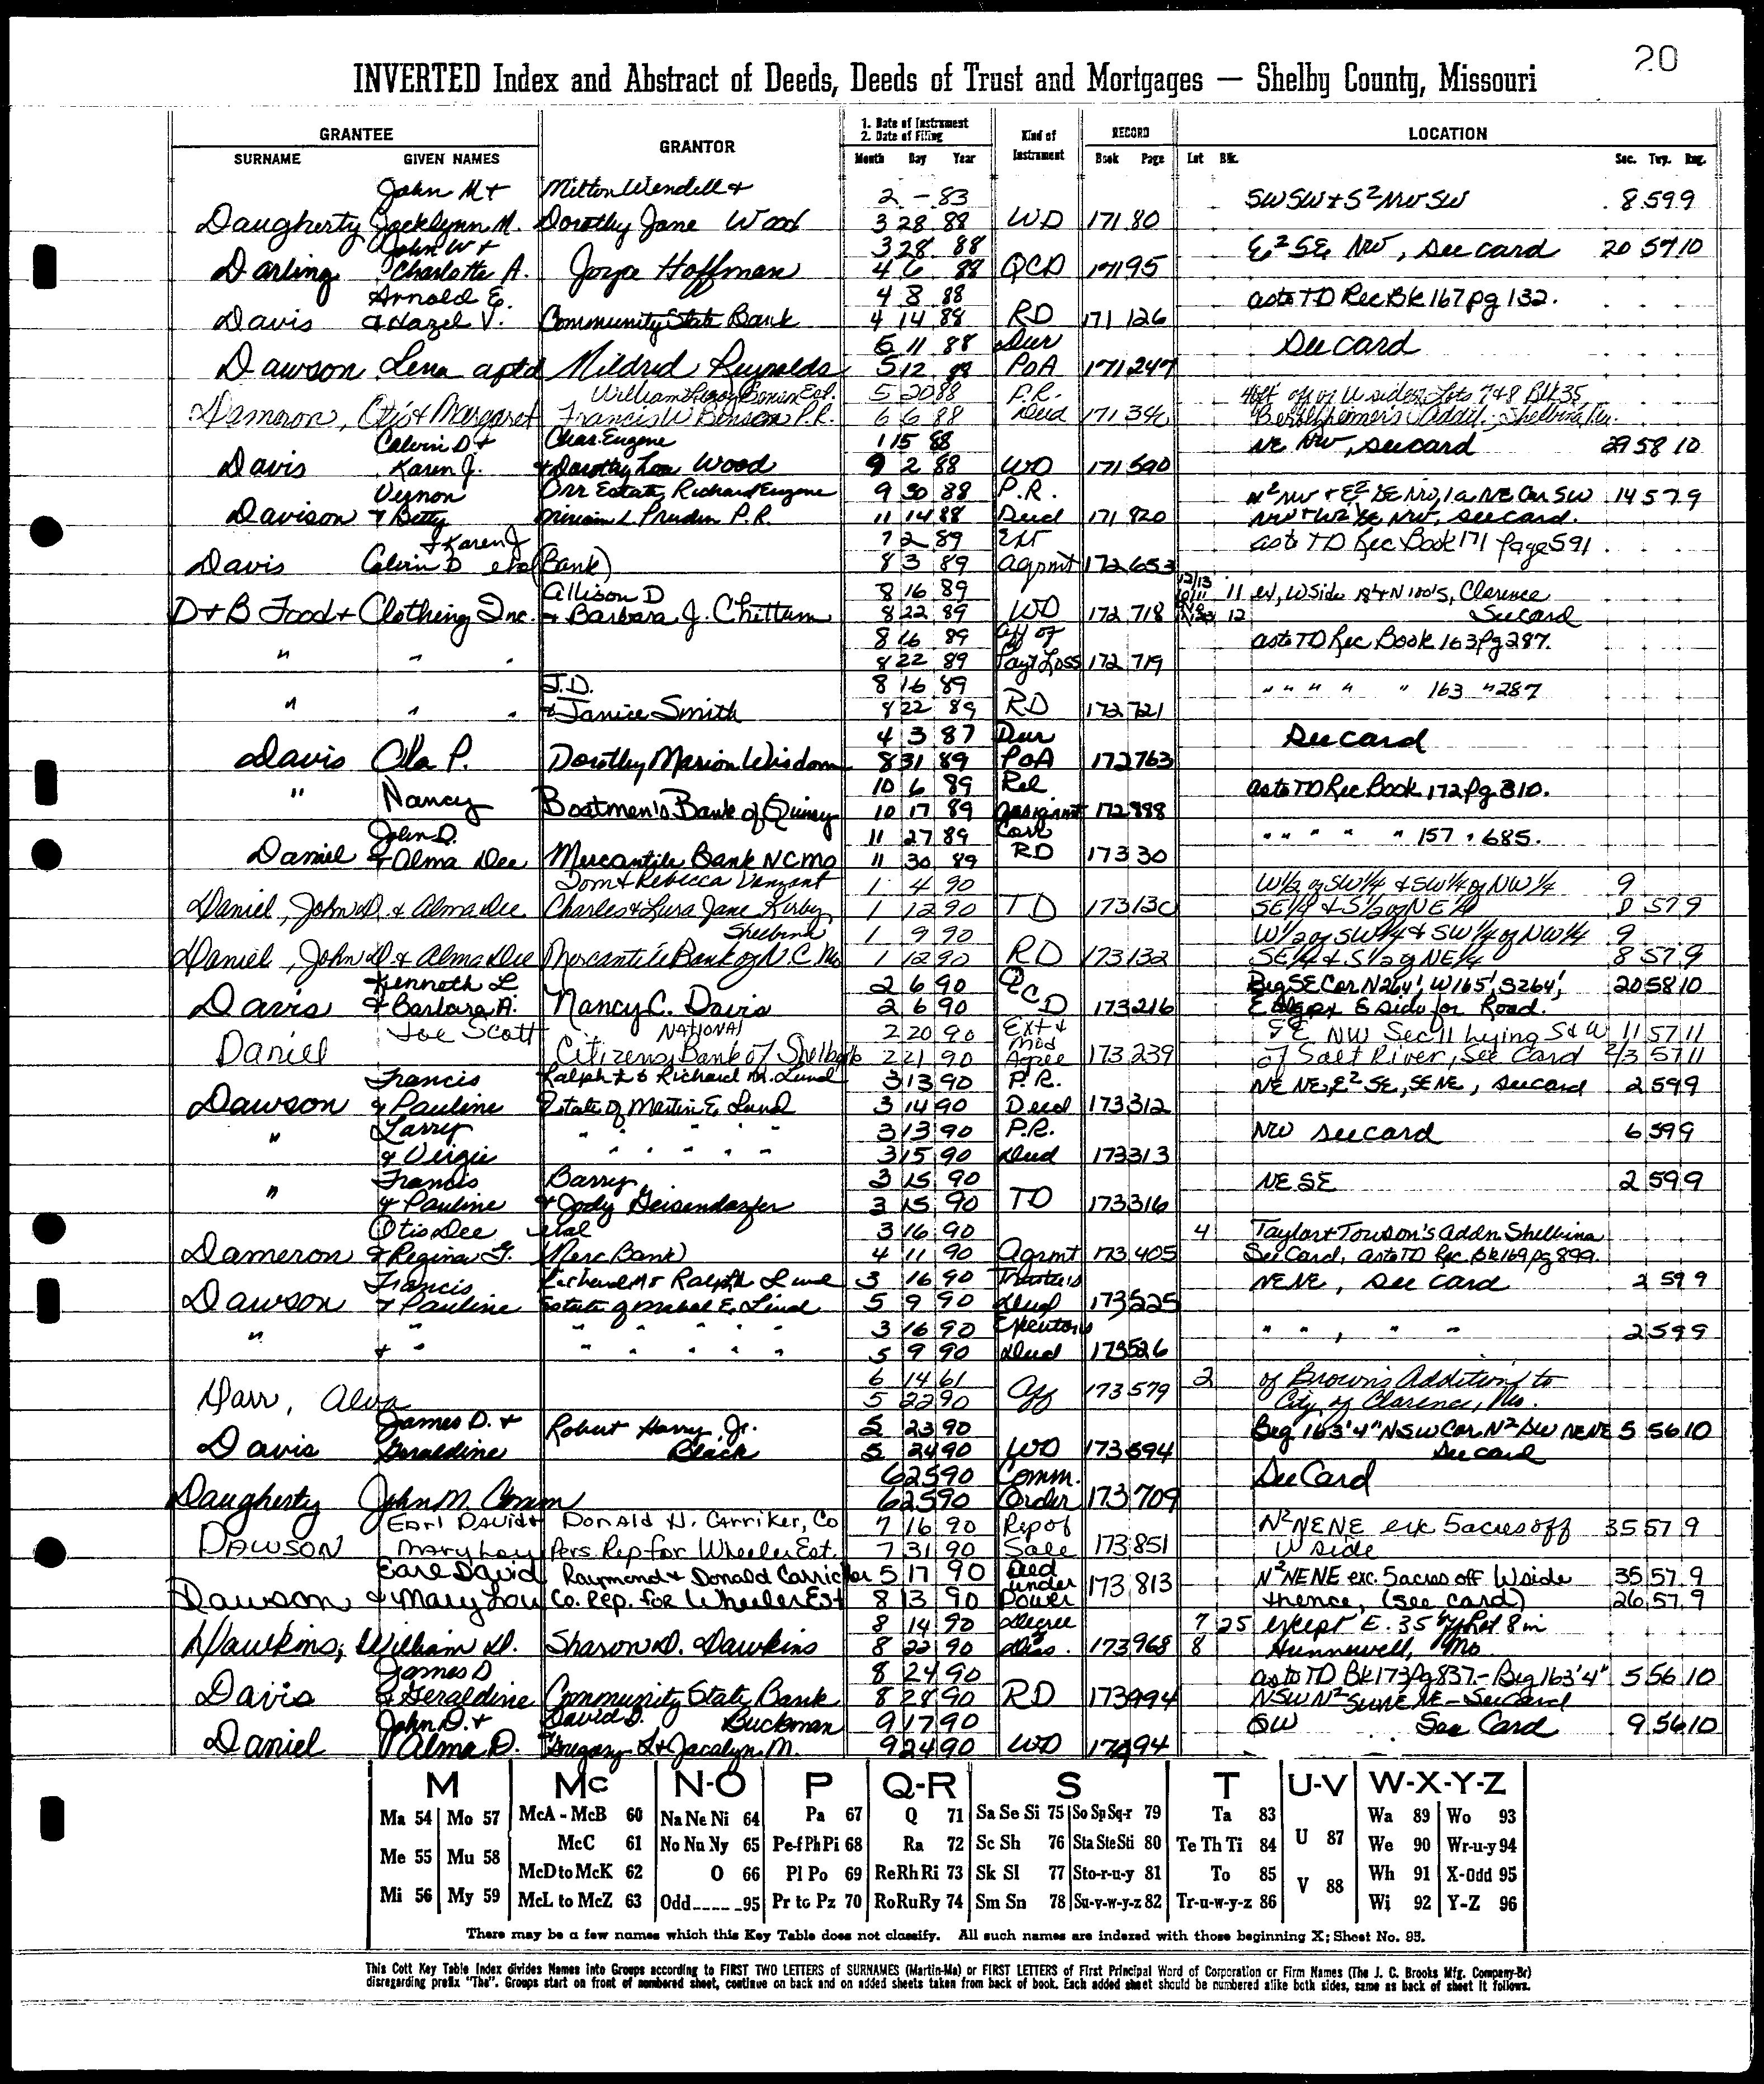 20
INVERTED Index and Abstract of Deeds, Deeds of Trust and Mortgages — Shelby County, Missouri
GRANTEE GRANTOR 1. Date of Instrument 2. Date of Filing Kind of Instrument RECORD LOCATION
SURNAME GIVEN NAMES Month Day Year Book Page Lot Blk. Sec. Twp. Rng.
John M + Milton Wendell + 2 - 83 SW SW + S² NW SW 8 59 9
Daugherty Jacklynn M. Dorothy Jane Wood 3 28 88 WD 171 80
John W + 3 28 88 E² SE NW, See card 20 57 10
Darling Charlotte A. Joyce Hoffman 4 6 88 QCD 171 95
Arnold E. 4 8 88 as to TD Rec Bk 167 pg 132.
Davis & Hazel V. Community State Bank 4 14 88 RD 171 126
5 11 88 Dur See card
Dawson Lena aptd Mildred Reynolds 5 12 88 PoA 171 247
5 20 88 P.R. off of W side Lots 7 & 8 Blk 35,
Dameron, Otis & Margaret Francis W Benson P.R. 6 6 88 Deed 171 346 Addn.,
Calvin D + Chas. Eugene 1 15 88 NE NW, See card 29 58 10
Davis Karen J. & Dorothy Lou Wood 9 2 88 WD 171 590
Vernon Orr Estate, Richard Eugene 9 30 88 P.R. N² NW + E² SE NW, 1 a NE Cor SW 14 57 9
Davison & Betty Miriam L Pruden P.R. 11 14 88 Deed 171 820 NW + W² SE NW, See card.
& Karen J 7 2 89 Ext as to TD Rec Book 171 Page 591
Davis Calvin D etal (Bank) 8 3 89 Agrmt 172 653
Allison D 8 16 89 11 ex, W Side 18' & N 100's, Clarence
D & B Food & Clothing Inc. & Barbara J. Chittum 8 22 89 WD 172 718 12 See card
8 16 89 Aff of as to TD Rec Book 163 Pg 287.
" " " 8 22 89 Pay't Loss 172 719
J.D. 8 16 89 " " " " " 163 " 287
" " " & Janice Smith 8 22 89 RD 172 721
4 3 87 Dur See card
Davis Ola P. Dorothy Marion Wisdom 8 31 89 PoA 172 763
10 6 89 Rel as to TD Rec Book 172 Pg 310.
" Nancy Boatmen's Bank of Quincy 10 17 89 Assignmt 172 988
John D. 11 27 89 Corr " " " " " 157 " 685.
Daniel & Alma Dee Mercantile Bank NCMO 11 30 89 RD 173 30
Tom & Rebecca Vanzant 1 4 90 W½ of SW¼ & SW¼ of NW¼ 9
Daniel, John D. & Alma Dee Charles & Lura Jane Kirby 1 12 90 TD 173 130 SE¼ & S½ of NE¼ 8 57 9
Shelbina 1 9 90 W½ of SW¼ & SW¼ of NW¼ 9
Daniel, John D & Alma Dee Mercantile Bank of N.C. Mo 1 12 90 RD 173 132 SE¼ & S½ of NE¼ 8 57 9
Kenneth L 2 6 90 QCD Beg SE Cor N264', W165', S264', 20 58 10
Davis & Barbara A. Nancy C. Davis 2 6 90 173 216 E side for Road.
Joe Scott NATIONAL 2 20 90 Ext & Mod NW Sec 11 Lying S & W 11 57 11
Daniel Citizens Bank of 2 21 90 Agree 173 239 of Salt River, See Card 2/3 57 11
Francis Ralph L & Richard M. Lund 3 13 90 P.R. NE NE, E² SE, SE NE, See card 2 59 9
Dawson & Pauline Estate of Martin E Lund 3 14 90 Deed 173 312
" Larry " " " " " 3 13 90 P.R. NW See card 6 59 9
& Virgie " " " " " 3 15 90 Deed 173 313
" Francis Barry 3 15 90 NE SE 2 59 9
& Pauline & Jody Geisendorfer 3 15 90 TD 173 316
Otis Dee etal 3 16 90 4 Taylor & Towson's Addn Shelbina
Dameron & Regina G. (Merc Bank) 4 11 90 Agrmt 173 405 See Card, as to TD Rec. Bk 169 pg 899.
Francis Richard M & Ralph Lund 3 16 90 Trustee's NE NE, See card 2 59 9
Dawson & Pauline Estate of Mabel E. Lund 5 9 90 Deed 173 525
" " " " " " " 3 16 90 Executors " ", " " 2 59 9
& " " " " " " 5 9 90 Deed 173 526
6 14 61 2 of Brown's Addition to
Darr, Alva 5 22 90 Aff 173 579 City of Clarence, Mo.
James D. + Robert Harry, Jr. 5 23 90 Beg 163'4" N SW Cor N² SW NE NE 5 56 10
Davis Geraldine Black 5 24 90 WD 173 594 See card
6 25 90 Comm. See Card
Daugherty John M. Comm 6 25 90 Order 173 709
Earl David + Donald H. Carriker, Co 7 16 90 Rep of N² NE NE exc 5 acres off 35 57 9
Dawson Mary Lou Pers. Rep for Wheeler Est. 7 31 90 Sale 173 851 W side
Earl David Raymond & Donald Carricker 5 17 90 Deed under N² NE NE exc. 5 acres off W side 35 57 9
Dawson & Mary Lou Co. Rep. for Wheeler Est 8 13 90 Power 173 813 thence, (see card) 26 57 9
8 14 90 Degree 7 25 except E. 35 8 in
Dawkins, William D. Sharon D. Dawkins 8 22 90 Diss. 173 968 8 Hunnewell, Mo
James D 8 24 90 as to TD Bk 173 Pg 837 - Beg 163'4" 5 56 10
Davis & Geraldine Community State Bank 8 28 90 RD 173 994 N SW N² SW NE NE - See Card
John D. + David D. Buckman 9 17 90 SW See Card 9 56 10
Daniel Alma D. Gregory L & Jacalyn M. 9 24 90 WD 174 94
M Mc N-O P Q-R S T U-V W-X-Y-Z
Ma 54 Mo 57 McA - McB 60 Na Ne Ni 64 Pa 67 Q 71 Sa Se Si 75 So Sp Sq-r 79 Ta 83 U 87 Wa 89 Wo 93
Me 55 Mu 58 McC 61 No Nu Ny 65 Pe-f Ph Pi 68 Ra 72 Sc Sh 76 Sta Ste Sti 80 Te Th Ti 84 We 90 Wr-u-y 94
McD to McK 62 O 66 Pl Po 69 Re Rh Ri 73 Sk Sl 77 Sto-r-u-y 81 To 85 V 88 Wh 91 X-Odd 95
Mi 56 My 59 McL to McZ 63 Odd 95 Pr to Pz 70 Ro Ru Ry 74 Sm Sn 78 Su-v-w-y-z 82 Tr-u-w-y-z 86 Wi 92 Y-Z 96
There may be a few names which this Key Table does not classify. All such names are indexed with those beginning X; Sheet No. 95.
This Cott Key Table Index divides Names into Groups according to FIRST TWO LETTERS of SURNAMES (Martin-Ma) or FIRST LETTERS of First Principal Word of Corporation or Firm Names (The J. C. Brooks Mfg. Company-Br)
disregarding prefix "The". Groups start on front of numbered sheet, continue on back and on added sheets taken from back of book. Each added sheet should be numbered alike both sides, same as back of sheet it follows.